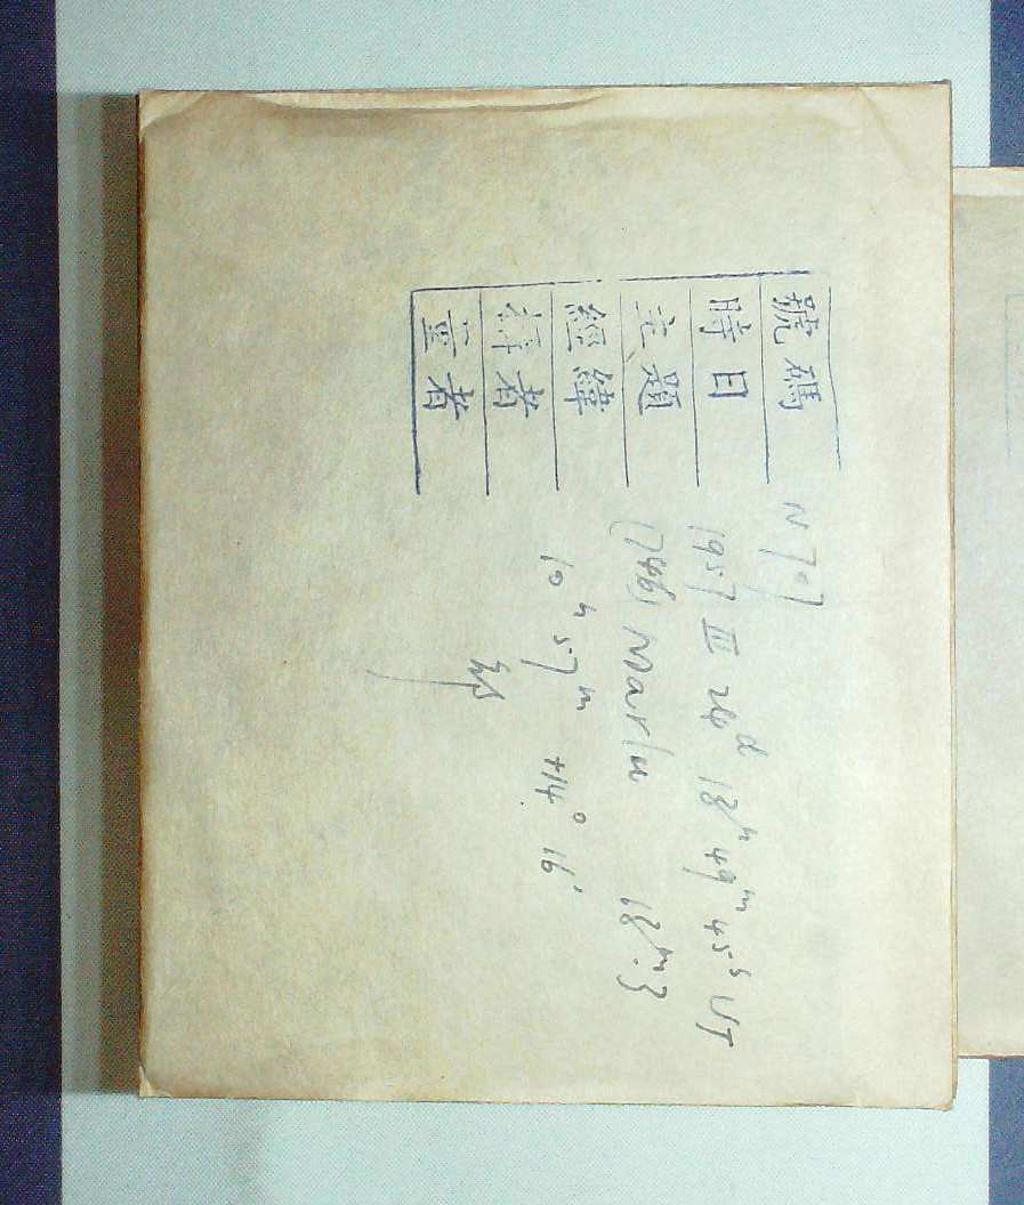 號碼 N 707
時日 1957 III 24ᵈ 18ʰ 49ᵐ 45ˢ UT
主題 (748) 18ᵐ.3
經緯 10ʰ 57ᵐ +14° 16'
者
者